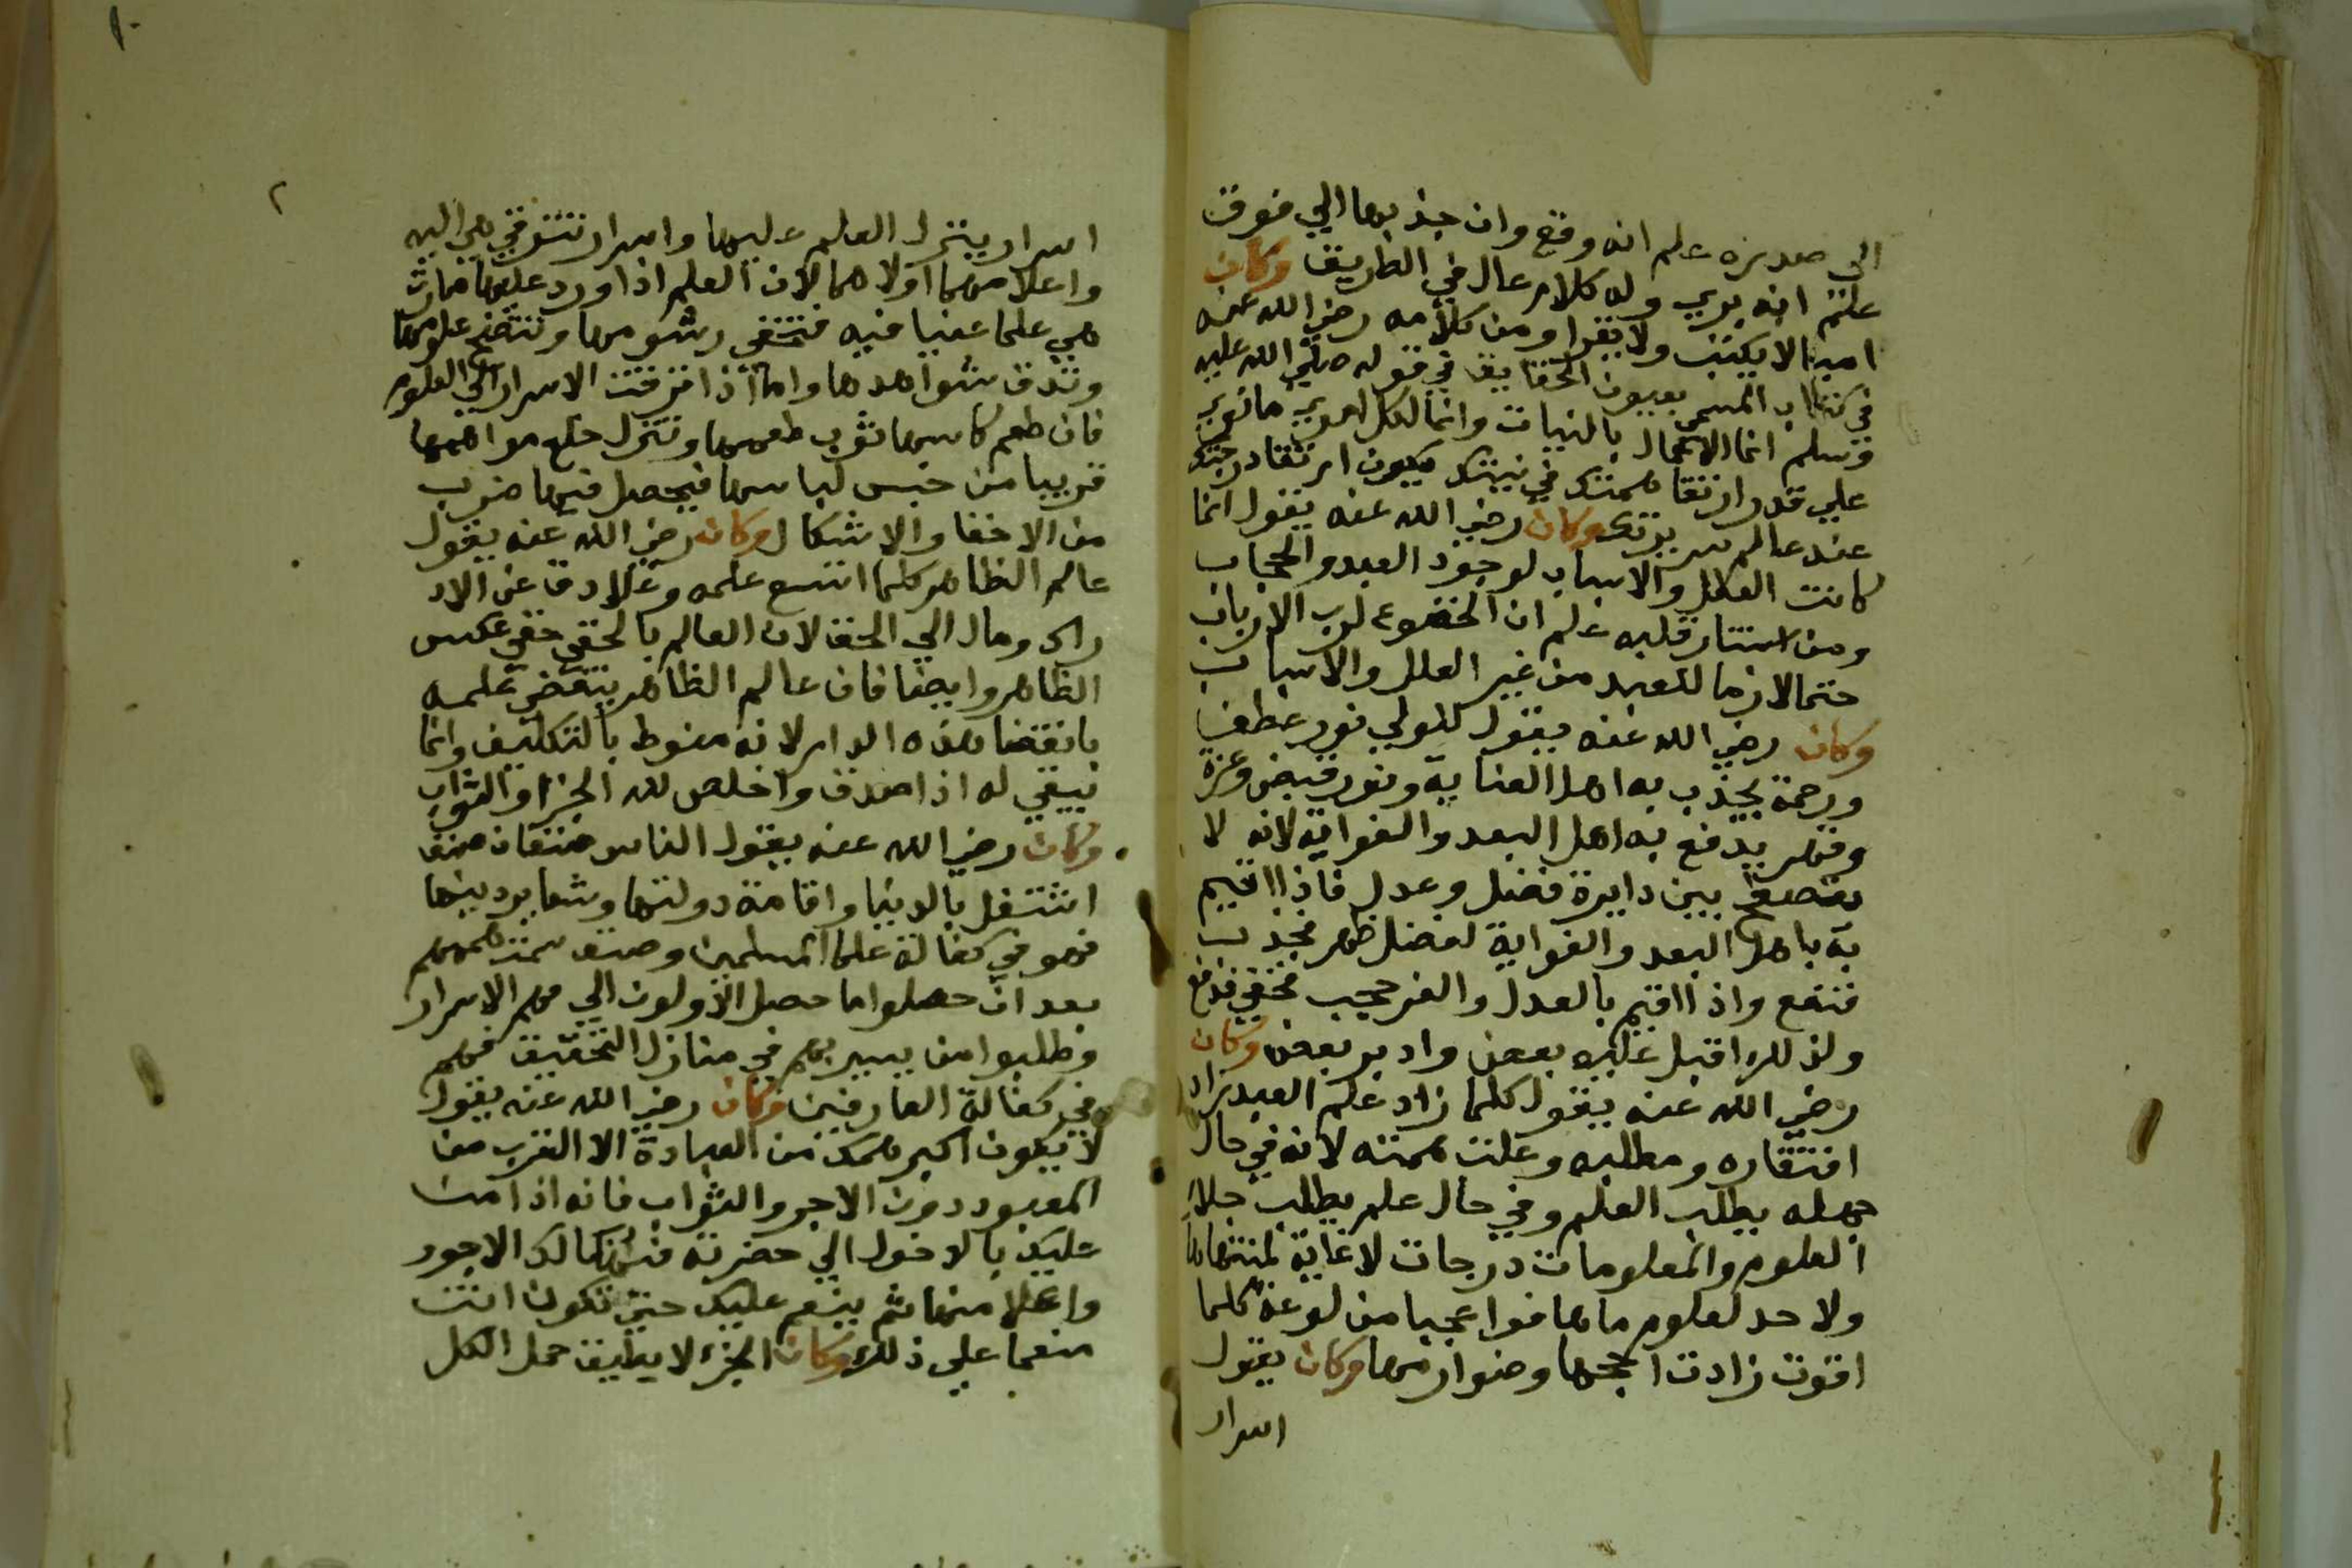 الى صدره علم انه وقع وان جذبها الي فوق
علم انه بري وله كلام عال في الطريق وكان
اميا لا يكتب ولا يقرا ومن كلامه رضي الله عنه
في كتاب المسمى بعيون الحقايق في قوله صلي الله عليه
وسلم انما الاعمال بالنيات وانما لكل امري مانوي
علي قدر ارتقا همتك في نيتك يكون ارتقا درجتك
عند عالم سريرتك وكان رضي الله عنه يقول انما
كانت العلل والاسباب لوجود البعد والحجاب
ومن استنار قلبه علم ان الخضوع لرب الارباب
حتما لازما للعبد من غير العلل والاسباب
وكان رضي الله عنه يقول للولي نور عطف
ورحمة يجذب به اهل العناية ونور قبض وعزة
وقهر يدفع به اهل البعد والغواية لانه لا
بين دايرة فضل وعدل فاذا اقيم
به باهل البعد والغواية لفضل ظهر فجذب
فنفع واذا اقيم بالعدل والعز حجب فخفي فدفع
ولذلك اقبل عليه بعض وادبر بعض وكان
رضي الله عنه يقول كلما زاد علم العبد زاد
افتقاره ومطلبه وعلت همته لانه في حال
جهله يطلب العلم وفي حال علم يطلب جلاء
العلوم والمعلومات درجات لا غاية لمنتهاها
ولا حد لعلوم ماها فوا عجبا من لوعة كلما
اقوت زادت اججها وضوارمها وكان يقول
اسرار
٢
اسرار يتنزل العلم عليها واسرار تترقي هي اليه
واعلاهما اولاهما لان العلم اذا ورد عليها صارت
هي علما عفيا فيه فتخفي رسومها وتتضح علومها
وتدق شواهدها واما اذا ترقت الاسرار الي العلوم
فان طعم كاسها ثوب طعمها وتتنزل خلع مواهبها
قريبا من حبس لباسها فيحصل فيها ضرب
من الاخفا والاشكال وكان رضي الله عنه يقول
عالم الظاهر كلما اتسع علمه وعلا دق عن الاد
راك ومال الي الخفا لان العالم بالحق خفي عكس
الظاهر وايضا فان عالم الظاهر ينقض علمه
بانقضا هذه الدار لانه منوط بالتكليف وانما
يبقي له اذا صدق واخلص لله الجزا والثواب
وكان رضي الله عنه يقول الناس صنفان صنف
اشتغل بالدنيا واقامة دولتها وشعاير دينها
فهو في كفالة علما المسلمين وصنف سمت هممهم
بعد ان حصلوا ما حصل الاولون الي فهم الاسرار
وطلبوا من يسير بهم في منازل التحقيق فهم
في كفالة العارفين وكان رضي الله عنه يقول
لا يكون اكبر همك من العبادة الا القرب من
المعبود دون الاجر والثواب فانه اذا من
عليك بالدخول الي حضرته فهنالك الاجور
واعلا منها ثم ينعم عليك حتي تكون انت
منعما علي ذلك وكان الجزء لا يطيق حمل الكل